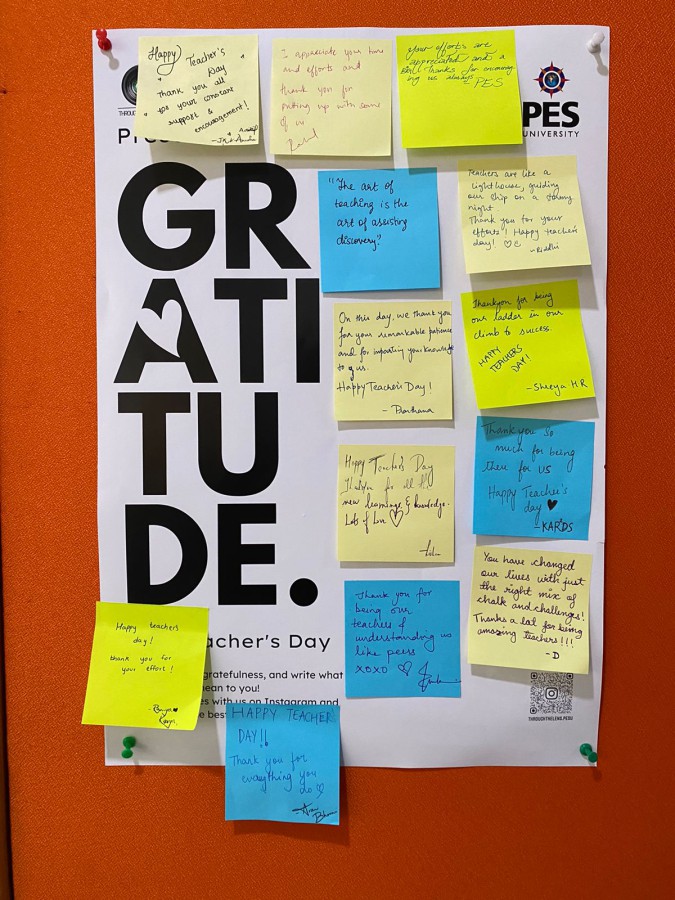 Happy Teacher's
Day
"Thank you all
for your constant
support &
encouragement!"
I appreciate your time
and efforts and
thank you for
putting up with some
of us
Your efforts are
appreciated and a
Thanks for
us always
-PES
PES
UNIVERSITY
THROUGH
Pres
GR
ATI
TU
DE.
"The art of
teaching is the
art of assisting
discovery."
Teachers are like a
lighthouse, guiding
our ship on a stormy
night
Thank you for your
efforts! Happy teacher's
day! ♡
-Riddhi
On this day, we thank you
for your remarkable patience
and for imparting your knowledge
to us.
Happy Teacher's Day!
- Prarthana
Thankyou for being
our ladder in our
climb to success.
HAPPY
TEACHERS
DAY!
-Shreya H.R
Happy Teacher's Day
Thankyou for all the
new learnings & knowledge.
Lots of Love ♡
Thank you so
much for being
there for us
Happy Teacher's
day ♥
-KARDS
Thank you for
being our
teachers &
understanding us
like peers
XOXO ♡
You have changed
our lives with just
the right mix of
chalk and challenges!
Thanks a lot for being
amazing teachers!!!
-D
Happy teachers
day!
thank you for
your effort!
acher's Day
gratefulness, and write what
mean to you!
es with us on Instagram and
e best
HAPPY TEACHER
DAY!!
Thank you for
everything you
do ♡
THROUGHTHELENS.PESU